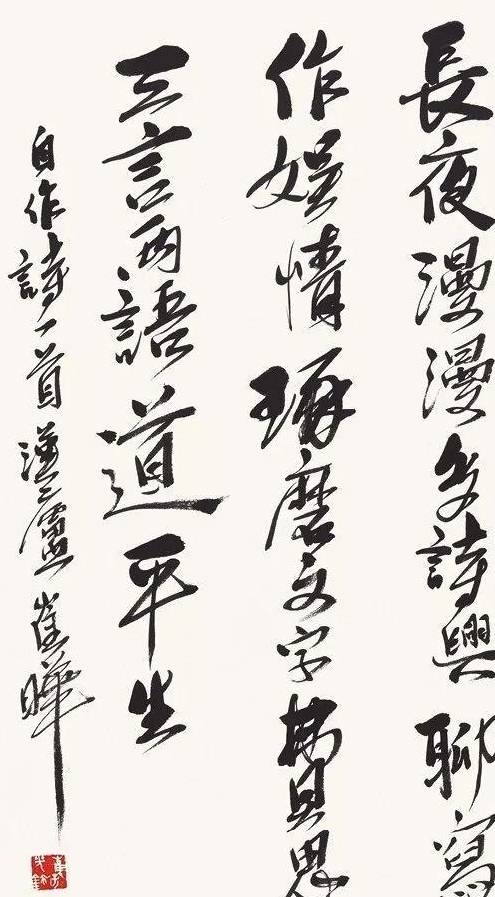 長夜漫漫多詩興聊寫
作娛情琢磨文字費思
三言兩語道平生
自作詩一首崔曄